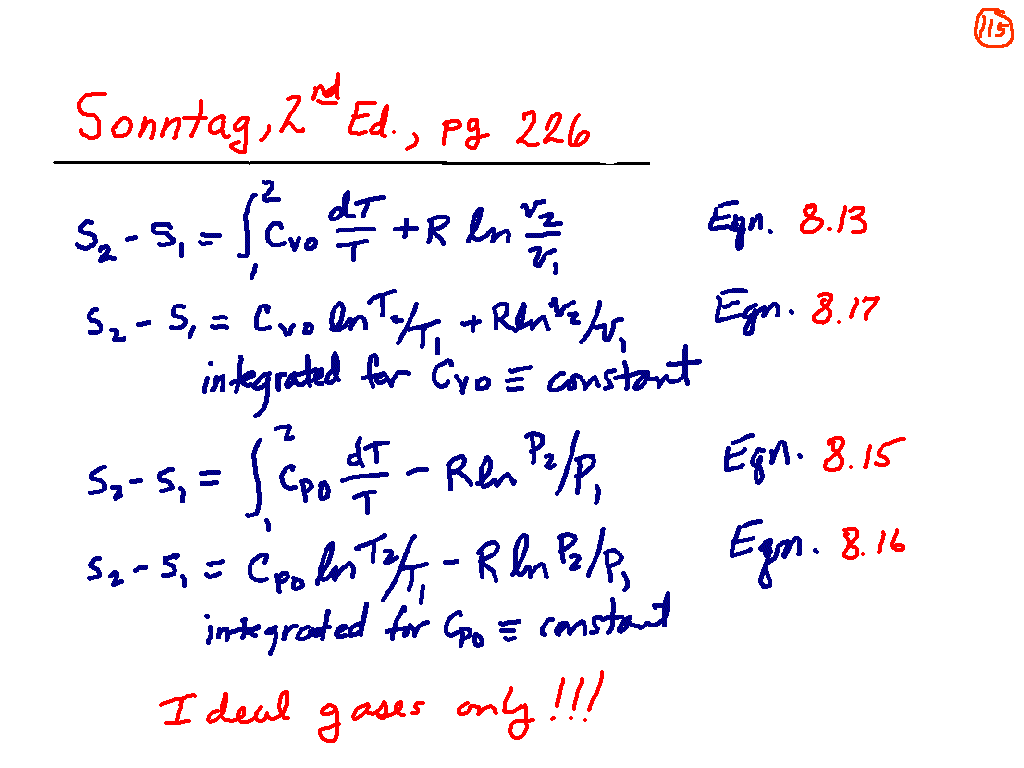 115
Sonntag, 2nd Ed., pg 226
S₂ - S₁ = ∫₁² Cvo dT/T + R ln v₂/v₁ Eqn. 8.13
S₂ - S₁ = Cvo ln T₂/T₁ + R ln v₂/v₁ Eqn. 8.17
integrated for Cvo ≡ constant
S₂ - S₁ = ∫₁² Cpo dT/T - R ln P₂/P₁ Eqn. 8.15
S₂ - S₁ = Cpo ln T₂/T₁ - R ln P₂/P₁ Eqn. 8.16
integrated for Cpo ≡ constant
Ideal gases only!!!